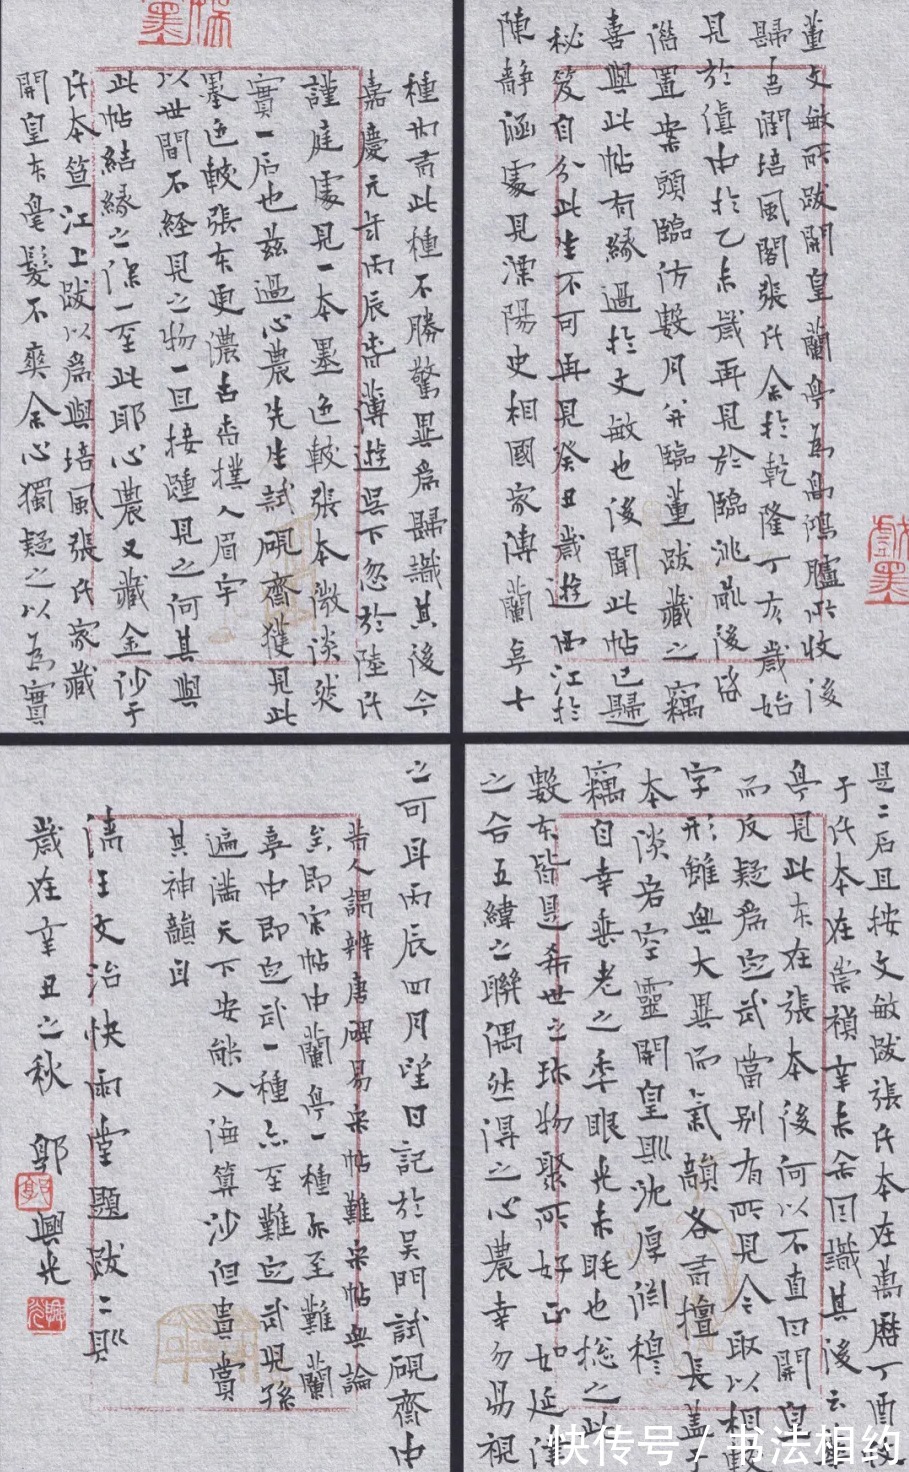 董文敏所跋開皇蘭亭為高鴻臚所收後
歸吾潤培風閣張氏余於乾隆丁亥歲始
見於滇中於乙未歲再見於臨洮最後
置案頭臨仿數月并臨董跋藏之竊
喜與此帖有緣過於文敏也後聞此帖已歸
秘笈自分此生不可再見癸丑歲遊西江於
陳靜涵處見溧陽史相國家傳蘭亭十
種內有此種不勝驚異為歸識其後今
嘉慶元年丙辰春薄遊吳下忽於陸氏
謹庭處見一本墨色較張本微淡然
實一石也茲過心農先生試硯齋獲見此
墨色較張本更濃古香撲人眉宇
以世間不經見之物一旦接踵見之何其與
此帖結緣之深一至此耶心農又藏金沙于
氏本笪江上跋以為與培風張氏家藏
開皇本毫髮不爽余心獨疑之以為實
是二石且按文敏跋張氏本在萬曆丁酉收
于氏本在崇禎辛未余因識其後云
亭見此本在張本後何以不直曰開皇
而反疑為定武當別有所見今取以相較
字形雖無大異而氣韻各有擅長蓋于
本淡宕空靈開皇則沈厚淵穆
竊自幸垂老之年眼光未眊也總之此
數本皆是希世之珎物聚所好正如延津
之合五緯之聯偶然得之心農幸勿易視
之可耳丙辰四月望日記於吳門試硯齋中
昔人謂辨唐碑易宋帖難宋帖無論
矣即宋帖中蘭亭一種亦至難蘭
亭中即定武一種亦至難定武兒孫
遍滿天下安能入海算沙但貴賞
其神韻耳
清王文治快雨堂題跋二則
歲在辛丑之秋 郭興光
戲墨
快传号 / 书法相约